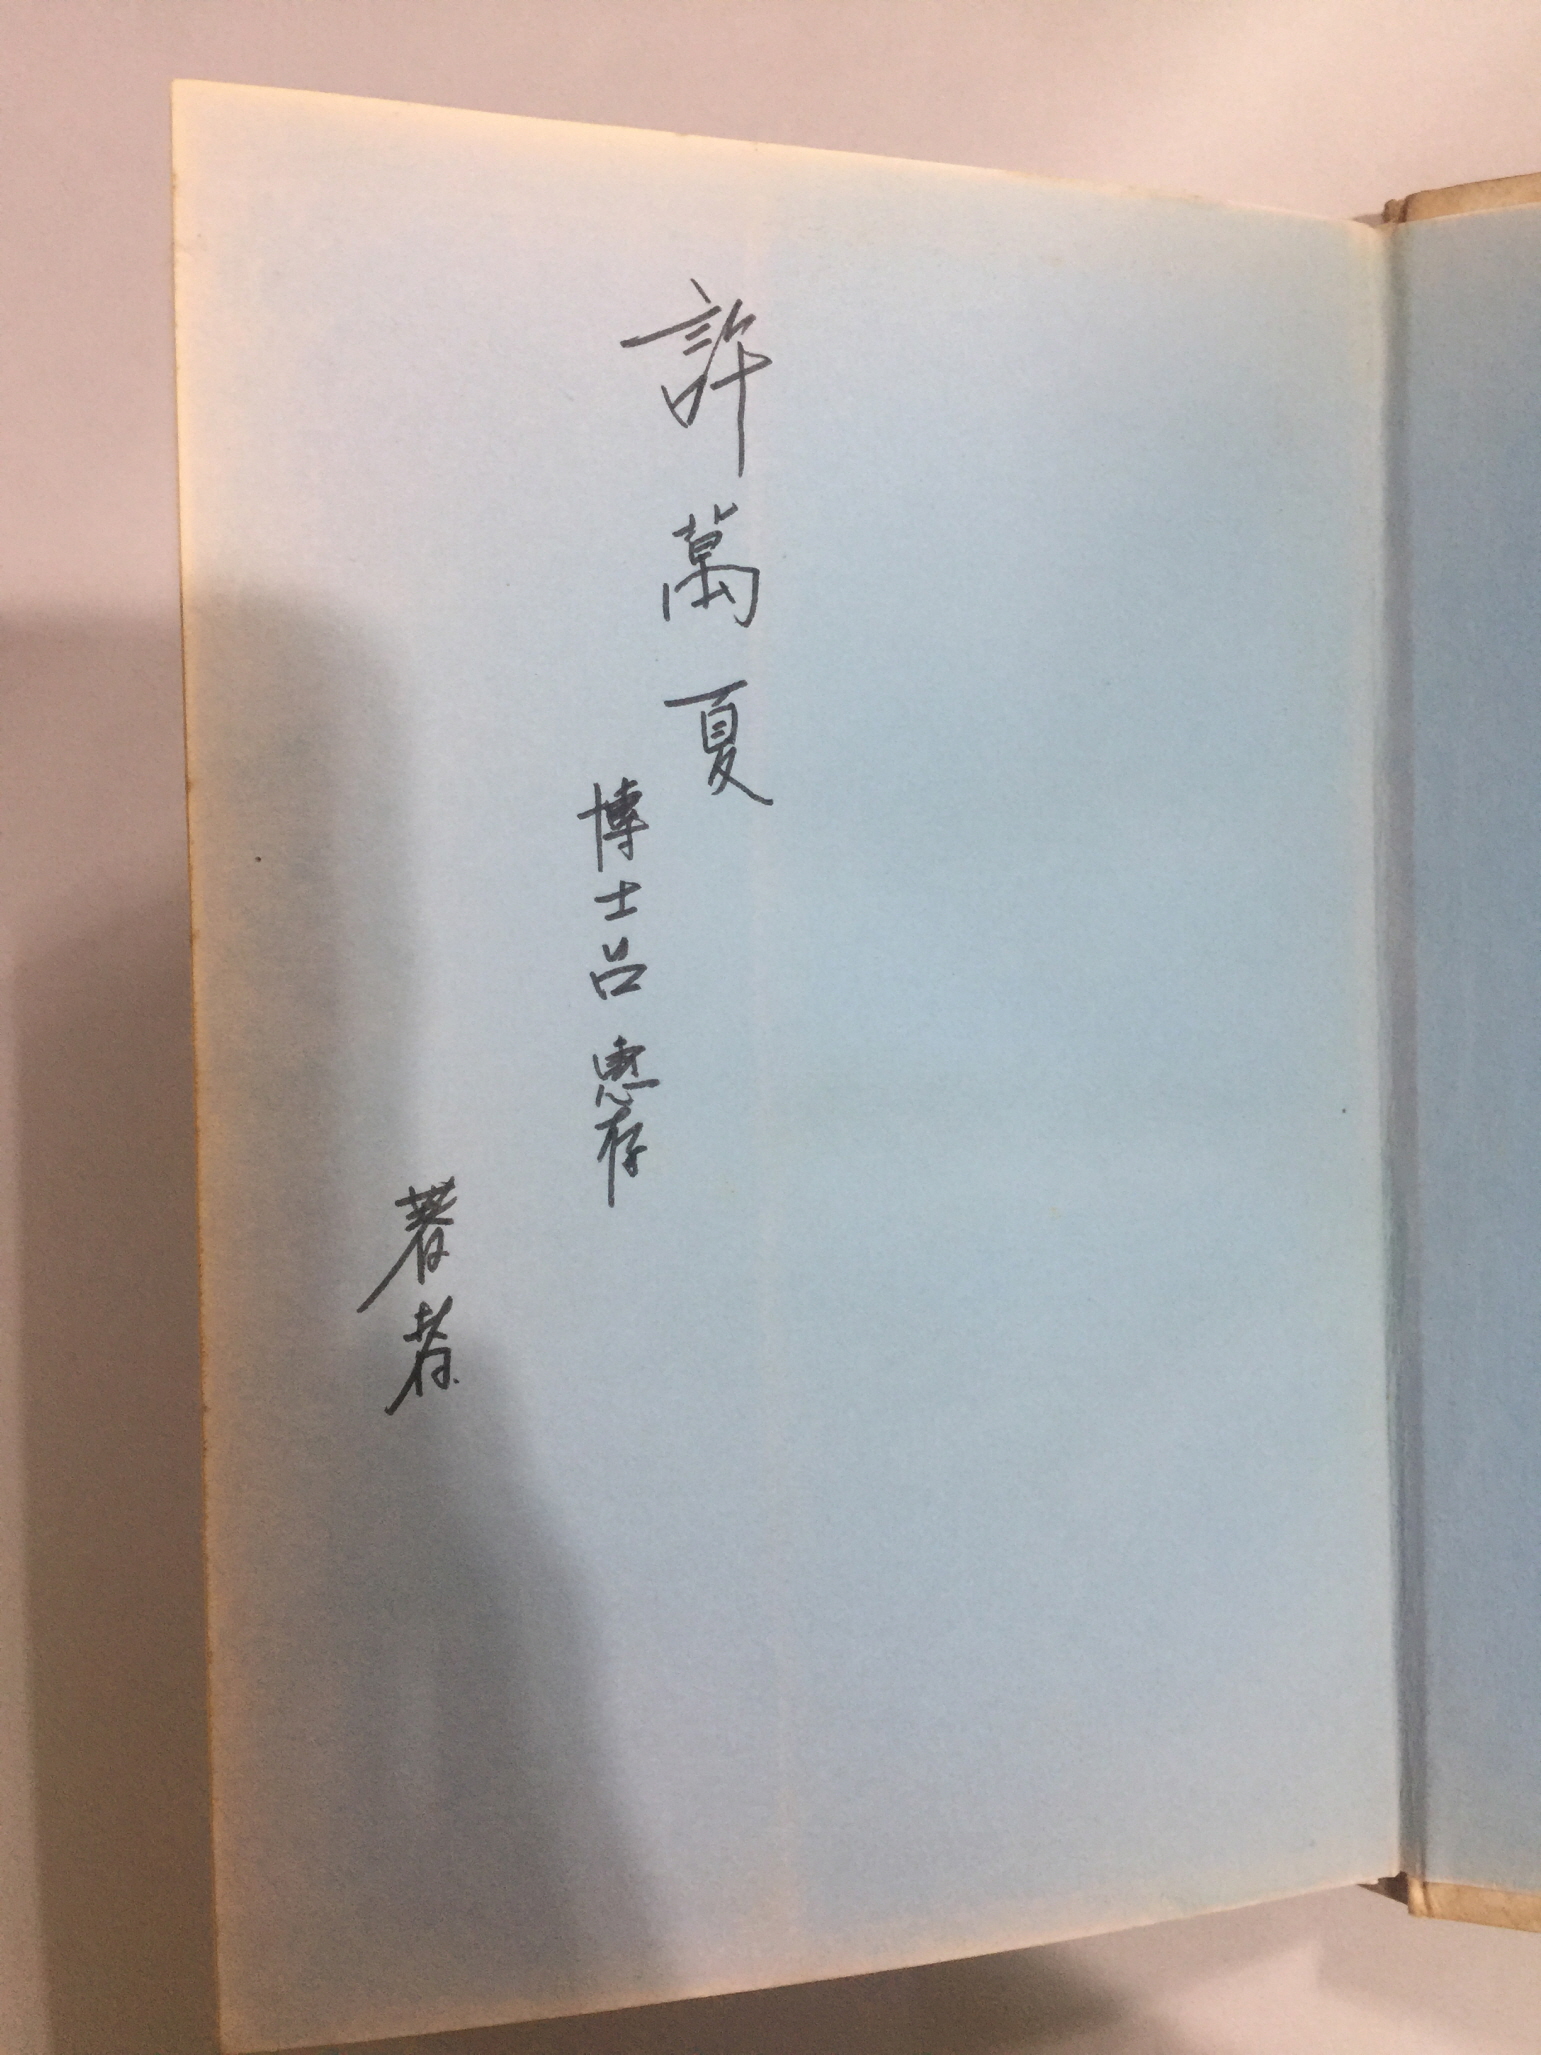 許萬夏
博士 呂 惠存
著者